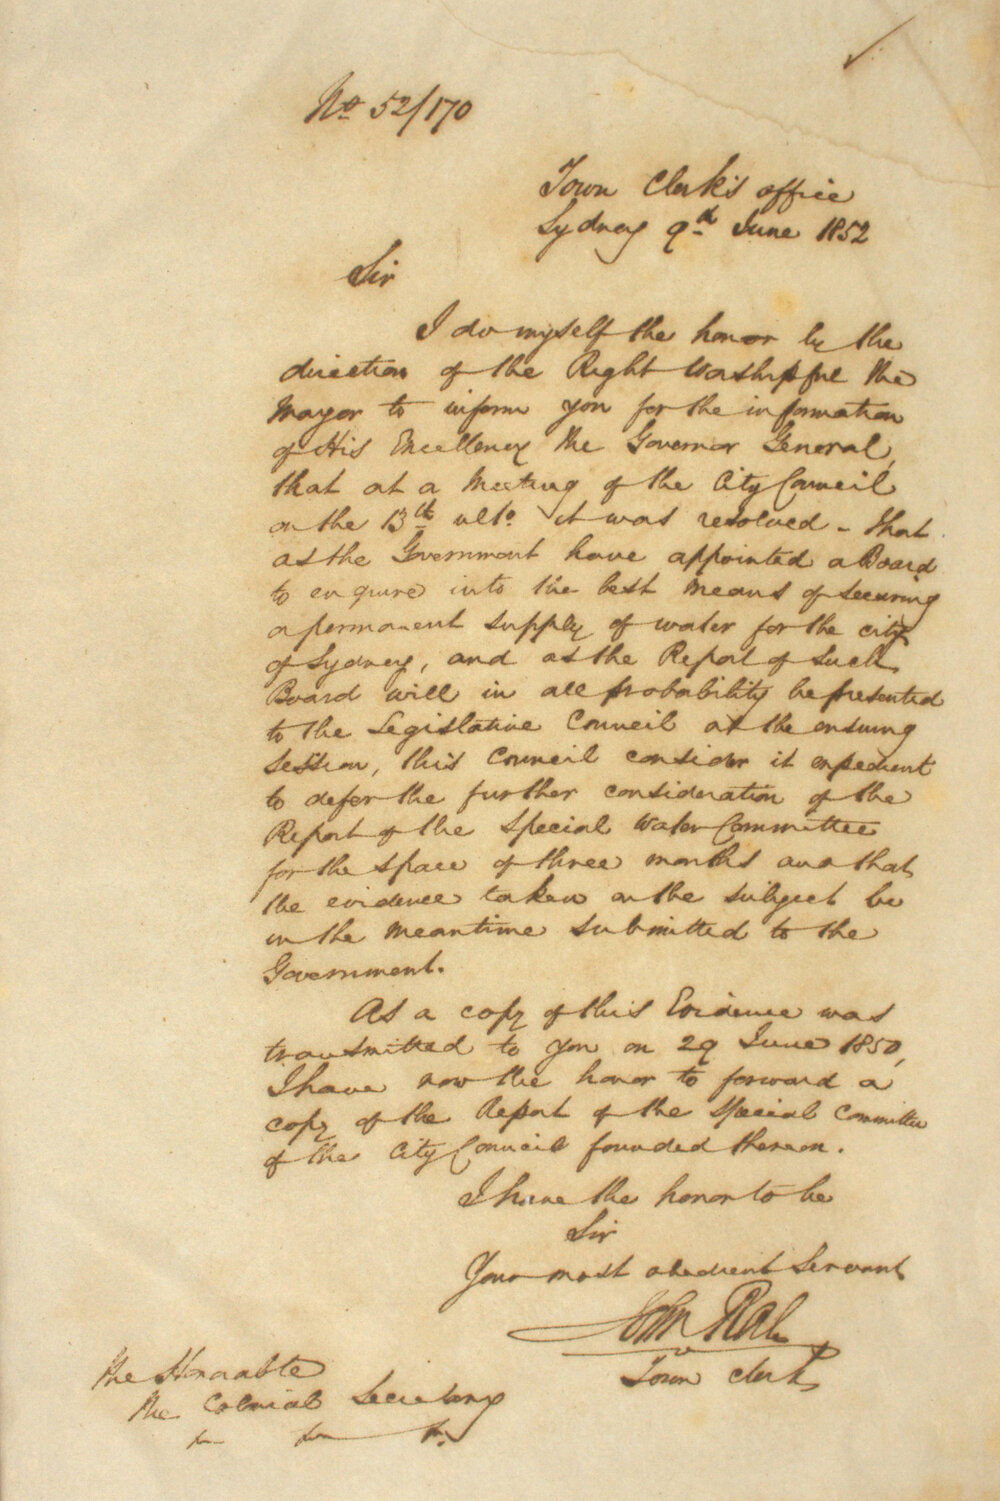 No 52/170
Town Clerk's office
Sydney 9d June 1852
Sir
I do myself the honor by the
direction of the Right Worshipful the
Mayor to inform you for the information
of His Excellency the Governor General,
that at a Meeting of the City Council
on the 13th ulto. it was resolved - that
as the Government have appointed a Board
to enquire into the best means of securing
a permanent supply of water for the city
of Sydney, and as the Report of such
Board will in all probability be presented
to the Legislative Council at the ensuing
session, this Council consider it expedient
to defer the further consideration of the
Report of the Special Water Committee
for the space of three months and that
the evidence taken on the subject be
in the meantime submitted to the
Government.
As a copy of this Evidence was
transmitted to you on 29 June 1850,
I have now the honor to forward a
copy of the Report of the Special Committee
of the City Council founded thereon.
I have the honor to be
Sir
Your most obedient Servant
John Rae
Town Clerk
The Honorable
The Colonial Secretary